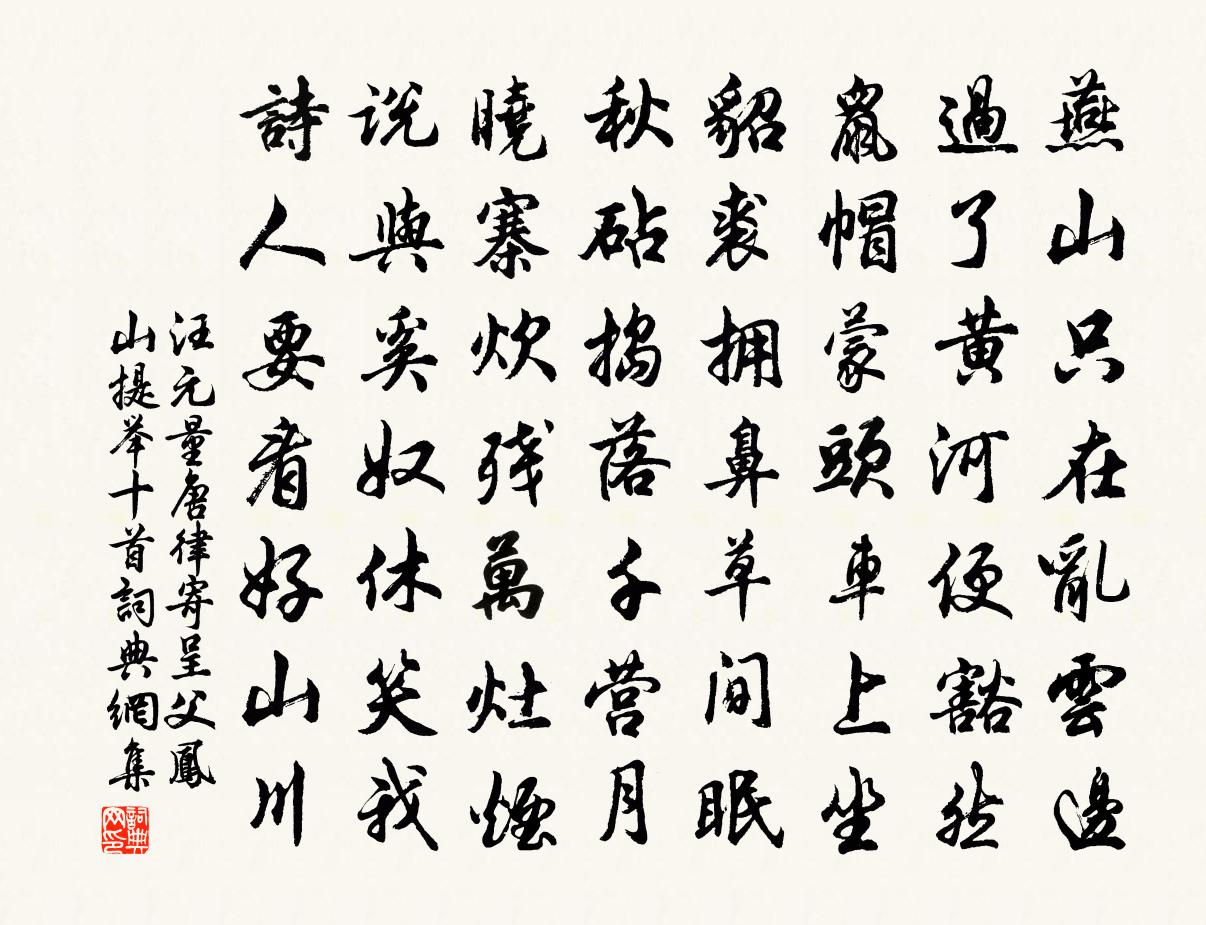 燕山只在亂雲邊
過了黃河便豁然
鼠帽蒙頭車上坐
貂裘拥鼻草間眠
秋砧搗落千营月
曉寨炊残萬灶煙
説與奚奴休笑我
詩人要看好山川
汪元量唐律寄呈父鳳
山提举十首詞典網集
詞典網印